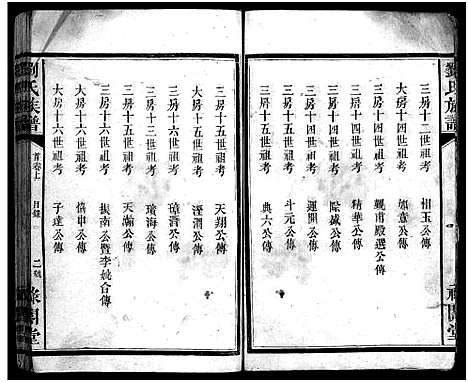 三房十二世祖考 相玉公傳
三房十四世祖考 如意公傳
三房十四世祖考 觀甫殿選公傳
三房十四世祖考 精華公傳
三房十四世祖考 殿盛公傳
三房十四世祖考 運開公傳
三房十四世祖考 斗元公傳
三房十五世祖考 典六公傳
三房十五世祖考 天翔公傳
三房十五世祖考 溼澗公傳
三房十五世祖考 璋濆公傳
三房十三世祖考 璸海公傳
三房十五世祖考 天瀚公傳
三房十五世祖考 振南公暨李姚合傳
大房十六世祖考 倍申公傳
大房十六世祖考 子達公傳
劉氏族譜
首卷上
目錄
二